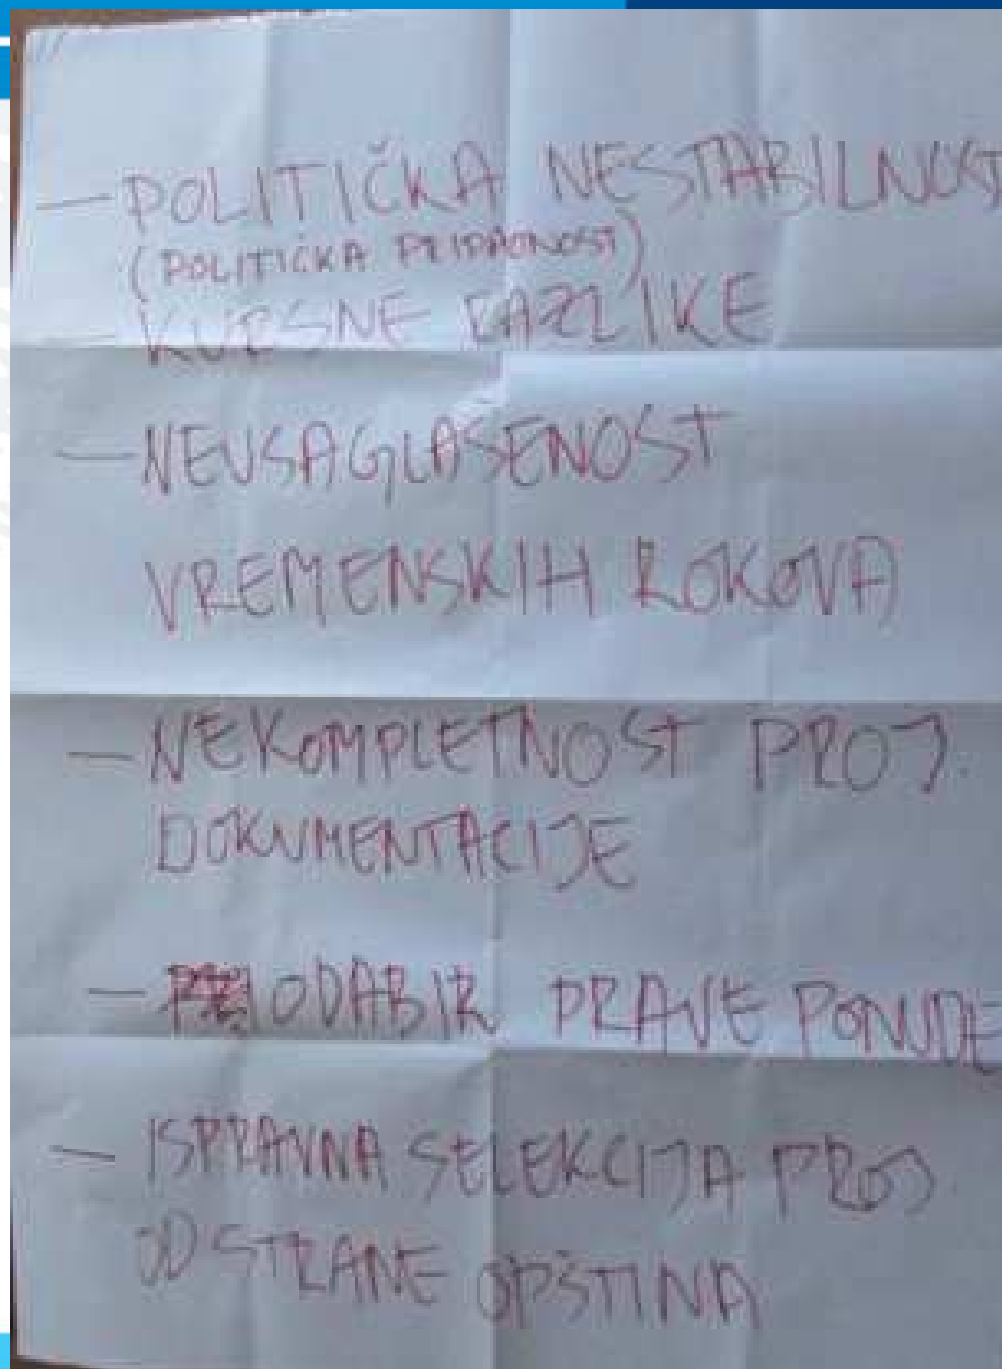 - POLITIČKA NESTABILNOST
(POLITIČKA PRIPADNOST)
- KURSNE RAZLIKE
- NEUSAGLASENOST
VREMENSKIH ROKOVA
- NEKOMPLETNOST PROJ.
DOKUMENTACIJE
- ODABIR PRAVE PONUDE
- ISPRAVNA SELEKCIJA PROJ.
OD STRANE OPŠTINA